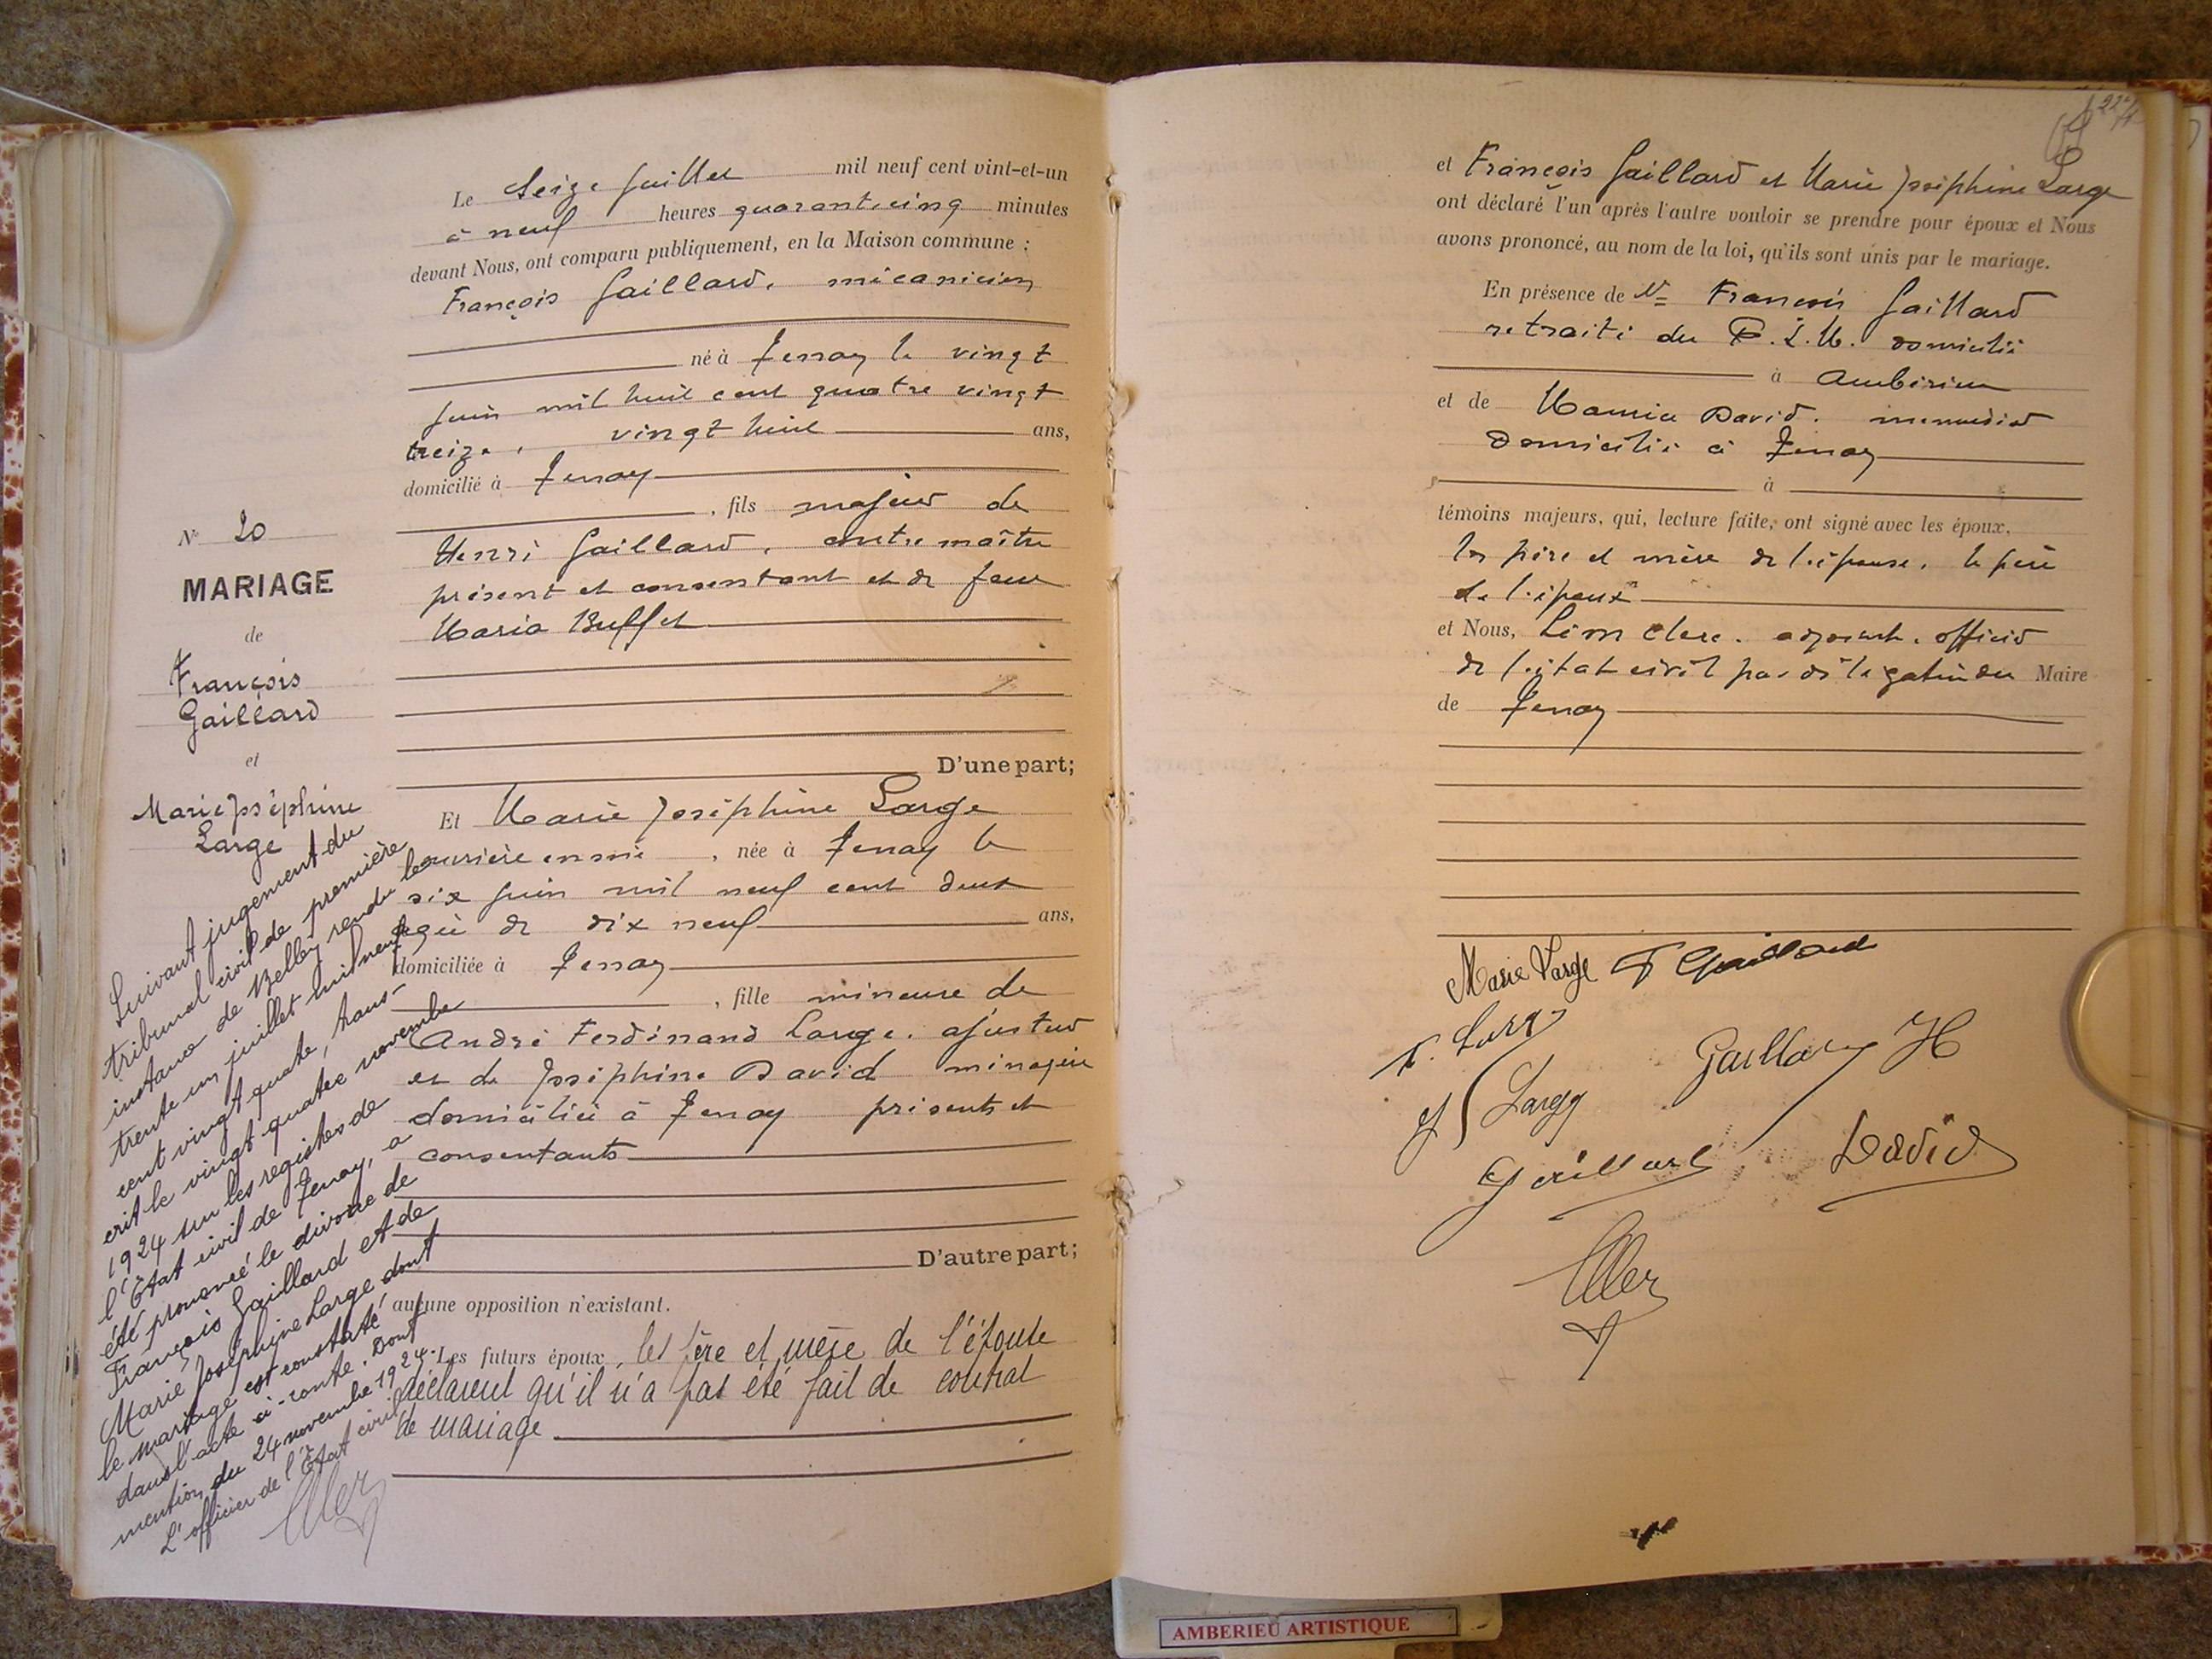 Le Seize Juillet mil neuf cent vint-et-un
à neuf heures quarante cinq minutes
devant Nous, ont comparu publiquement, en la Maison commune :
François Gaillard, mécanicien
né à Tenay le vingt
juin mil huit cent quatre vingt
treize, vingt huit ans,
domicilié à Tenay
, fils majeur de
Henri Gaillard, contre maître
présent et consentant et de feue
Maria Buffet
D'une part;
Et Marie Joséphine Large
ouvrière en soie, née à Tenay le
six juin mil neuf cent deux
âgée de dix neuf ans,
domiciliée à Tenay
, fille mineure de
André Ferdinand Large, ajusteur
et de Joséphine David ménagère
domiciliés à Tenay présents et
consentants
D'autre part;
aucune opposition n'existant.
Les futurs époux, les père et mère de l'épouse
déclarent qu'il n'a pas été fait de contrat
de mariage
N° 20
MARIAGE
de
François
Gaillard
et
Marie Joséphine
Large
Suivant jugement du
tribunal civil de première
instance de Belley rendu le
trente un juillet mil neuf
cent vingt quatre, trans-
crit le vingt quatre novembre
1924 sur les registres de
l'Etat civil de Tenay, a
été prononcé le divorce de
François Gaillard et de
Marie Joséphine Large dont
le mariage est constaté
dans l'acte ci-contre. Dont
mention du 24 novembre 1924.
L'officier de l'Etat civil
et François Gaillard et Marie Joséphine Large
ont déclaré l'un après l'autre vouloir se prendre pour époux et Nous
avons prononcé, au nom de la loi, qu'ils sont unis par le mariage.
En présence de François Gaillard
retraité du P.L.M. domicilié
à Ambérieu
et de David.
domicilié à Tenay
à
témoins majeurs, qui, lecture faite, ont signé avec les époux,
les père et mère de l'épouse, le père
de l'époux
et Nous, Clerc, adjoint, officier
de l'état civil par délégation du Maire
de Tenay
Marie Large F Gaillard
Gaillard H
Gaillard David
AMBERIEU ARTISTIQUE